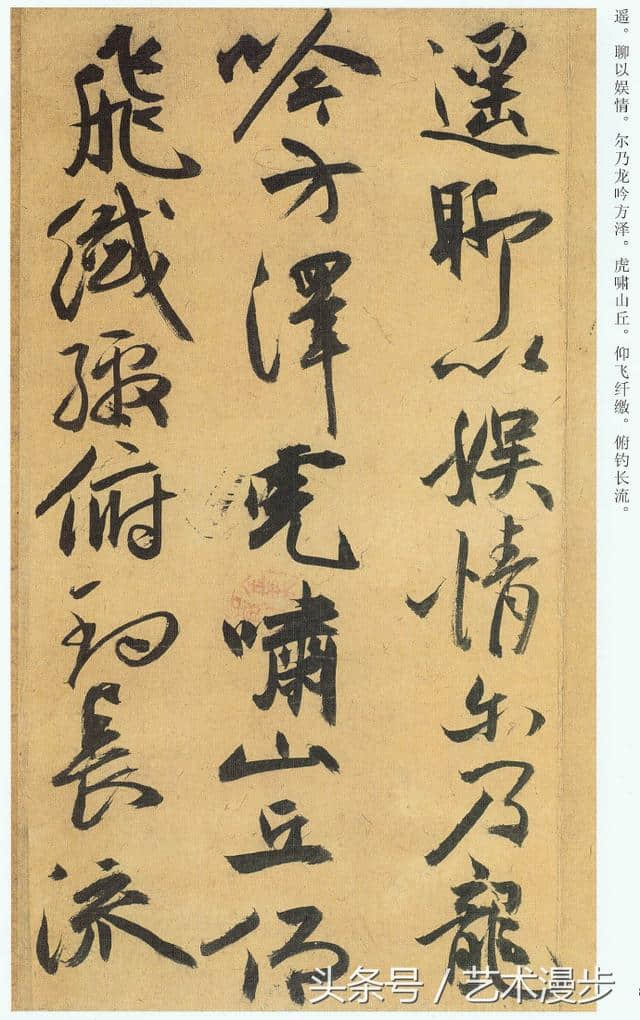 遥聊以娱情尔乃龍
吟方澤虎嘯山丘仰
飛纖繳俯钓長流
遥。聊以娱情。尔乃龙吟方泽。虎啸山丘。仰飞纤缴。俯钓长流。
头条号 / 艺术漫步